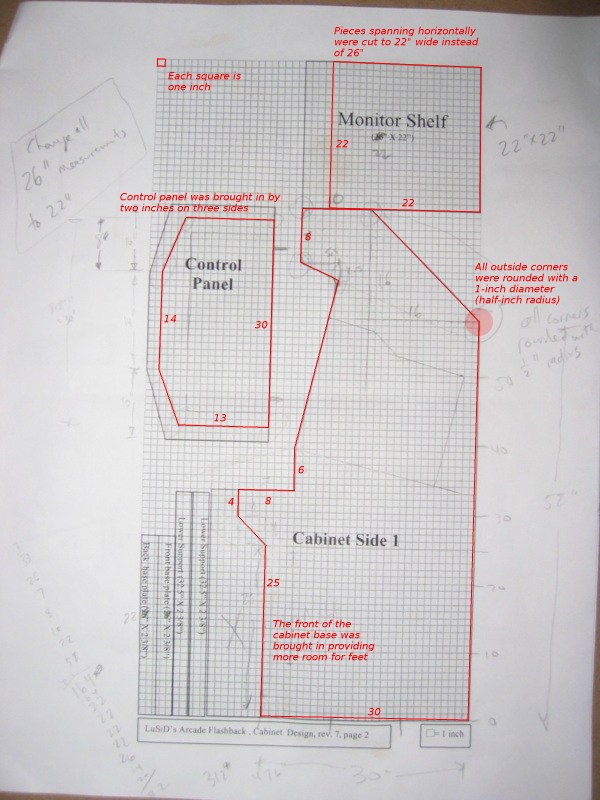 Pieces spanning horizontally
were cut to 22" wide instead
of 26"
Each square is
one inch
Monitor Shelf
X 22")
22
22
22"x22"
Change all
26" measurements
to 22"
Control panel was brought in by
two inches on three sides
8
Control
Panel
14
30
13
16
16
All outside corners
were rounded with a
1-inch diameter
(half-inch radius)
all corners
rounded with
radius
50
40
6
4
8
Cabinet Side 1
25
30
10
0
Lower Support (32.5" X 2 3/8")
Lower Support (32.5" X 2 3/8")
Front base plate
X 2 3/8")
Back base plate
X 2 3/8")
The front of the
cabinet base was
brought in providing
more room for feet
30
LuSiD's Arcade Flashback , Cabinet Design, rev. 7, page 2
= 1 inch
30